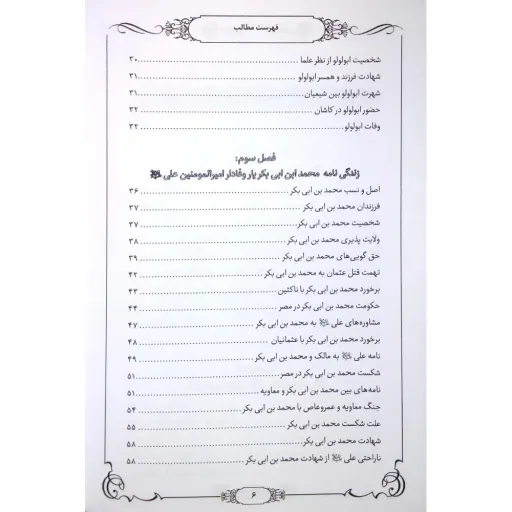 فهرست مطالب
شخصیت ابولولو از نظر علما ............ ۳۰
شهادت فرزند و همسر ابولولو ............ ۳۱
شهرت ابولولو بین شیعیان ............ ۳۱
حضور ابولولو در کاشان ............ ۳۲
وفات ابولولو ............ ۳۲
فصل سوم:
زندگی نامه محمد ابن ابی بکر یار وفادار امیرالمومنین علی
اصل و نسب محمد بن ابی بکر ............ ۳۶
فرزندان محمد بن ابی بکر ............ ۳۷
شخصیت محمد بن ابی بکر ............ ۳۷
ولایت پذیری محمد بن ابی بکر ............ ۳۸
حق گویی‌های محمد بن ابی بکر ............ ۳۹
تهمت قتل عثمان به محمد بن ابی بکر ............ ۴۲
برخورد محمد بن ابی بکر با ناکثین ............ ۴۳
حکومت محمد بن ابی بکر در مصر ............ ۴۴
مشاوره‌های علی به محمد بن ابی بکر ............ ۴۷
برخورد محمد بن ابی بکر با عثمانیان ............ ۴۸
نامه علی به مالک و محمد بن ابی بکر ............ ۴۹
شکست محمد بن ابی بکر در مصر ............ ۵۱
نامه‌های بین محمد بن ابی بکر و معاویه ............ ۵۱
جنگ معاویه و عمروعاص با محمد بن ابی بکر ............ ۵۴
علت شکست محمد بن ابی بکر ............ ۵۵
شهادت محمد بن ابی بکر ............ ۵۸
ناراحتی علی از شهادت محمد بن ابی بکر ............ ۵۸
۶